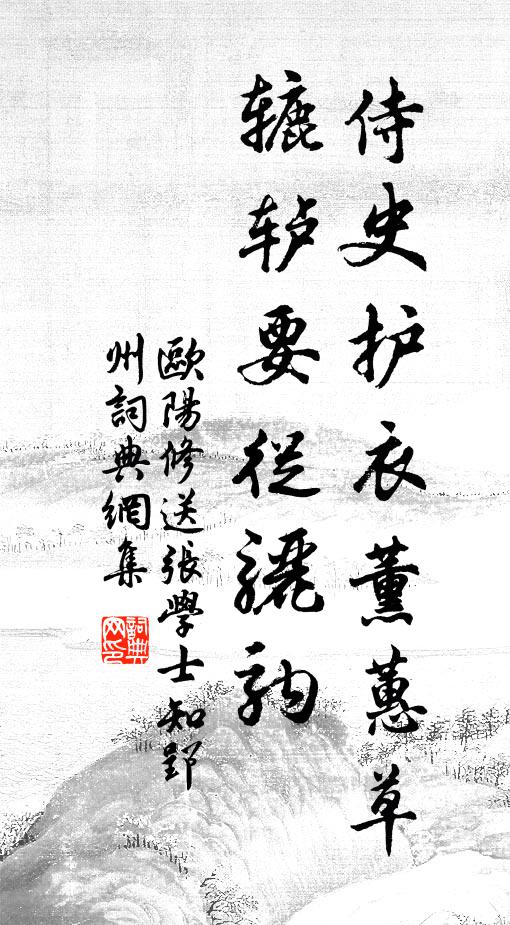 侍史护衣薰蕙草
辘轳要從驪
歐陽修送張學士知郢
州詞典網集
詞典
网印